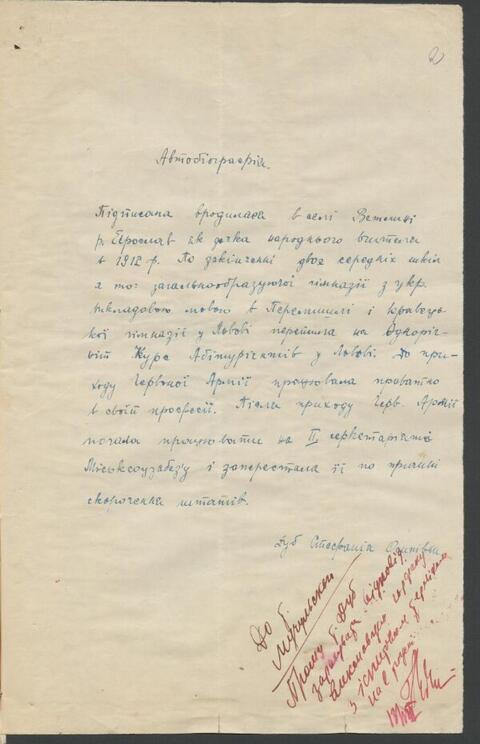 2
Автобіографія.
Підписана вродилася в селі Ветлині
р. Ярослав як дочка народнього вчителя
в 1912 р. По закінченні двох середніх шкіл
а то: загальнообразуючої гімназії з укр.
викладовою мовою в Перемишлі і кравець-
кої гімназії у Львові перейшла на Однорiч-
ний Курс Абітурієнтів у Львові. До при-
ходу Червоної Армії працювала приватно
в своїй професії. Після приходу Черв. Армії
почала працювати на II секретаріяті
Міськсоузабезу і заперестала її по причині
скорочення штатів.
Дуб Стефанія
До
Прошу Дуб
з
на